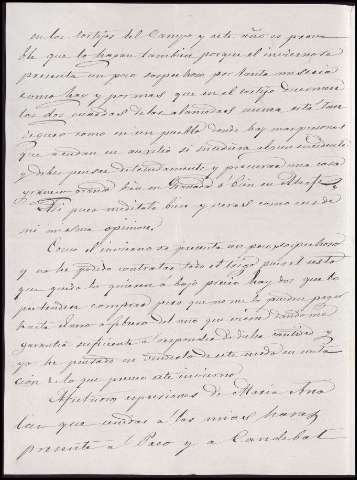 en los cortijos del Campo y este año es prova-
ble que lo hagan tambien porque el invierno se
presenta un poco sospechoso por tanta miseria
como hay y por mas que en el cortijo duermen
los dos guardas de las alamedas nunca está tan
seguro como en un pueblo donde hay mas personas
que acudan en auxilio si sucediera algun incidente
y debes pensar detenidamente y procurar una casa
grande bien en Granada ó bien en Atarfe
Tu pues meditalo bien y veras como eres de
mi misma opinion.
Como el invierno se presenta un poco sospechoso
y no he podido contratar todo el trigo pues el resto
que queda lo quieren á bajo precio hay dos que lo
pretenden comprar pero que no me lo pueden pagar
hasta Enero ó Febrero del año que viene dandome
garantia suficiente á responder de dicha cantidad y
yo he pensado en venderlo de este modo en aten-
cion á lo que preveo este invierno
Afectuosas espresiones de Maria Ana
las que unidas á las mias haras
presente á Paco y a Candebat